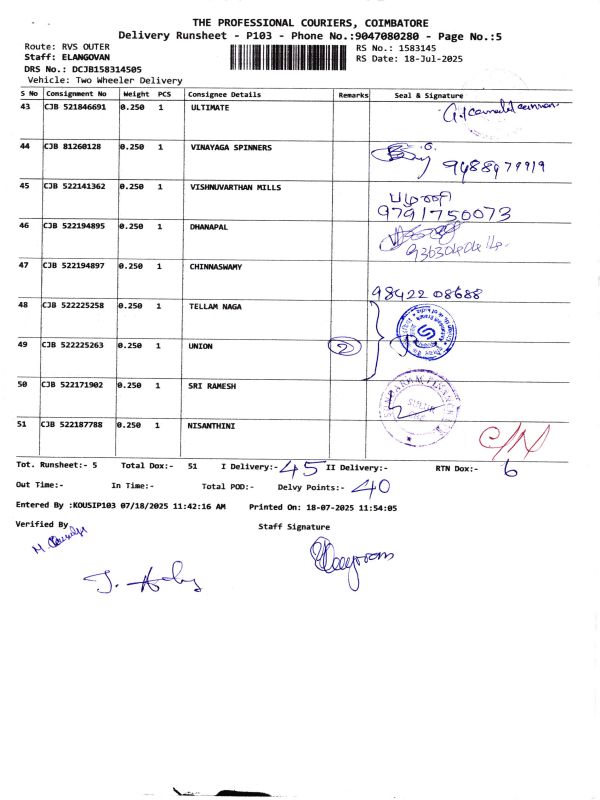 THE PROFESSIONAL COURIERS, COIMBATORE
Delivery Runsheet - P103 - Phone No.:9047080280 - Page No.:5
Route: RVS OUTER
Staff: ELANGOVAN
RS No.: 1583145
RS Date: 18-Jul-2025
DRS No.: DCJB158314505
Vehicle: Two Wheeler Delivery
S No Consignment No Weight PCS Consignee Details Remarks Seal & Signature
43 CJB 521846691 0.250 1 ULTIMATE
44 CJB 81260128 0.250 1 VINAYAGA SPINNERS
9488979919
45 CJB 522141362 0.250 1 VISHNUVARTHAN MILLS
பழனி
9791750073
46 CJB 522194895 0.250 1 DHANAPAL
47 CJB 522194897 0.250 1 CHINNASWAMY
98422 08688
48 CJB 522225258 0.250 1 TELLAM NAGA
49 CJB 522225263 0.250 1 UNION 2
50 CJB 522171902 0.250 1 SRI RAMESH
51 CJB 522187788 0.250 1 NISANTHINI C/N
Tot. Runsheet:- 5 Total Dox:- 51 I Delivery:- 45 II Delivery:- RTN Dox:- 6
Out Time:- In Time:- Total POD:- Delvy Points:- 40
Entered By :KOUSIP103 07/18/2025 11:42:16 AM Printed On: 18-07-2025 11:54:05
Verified By Staff Signature